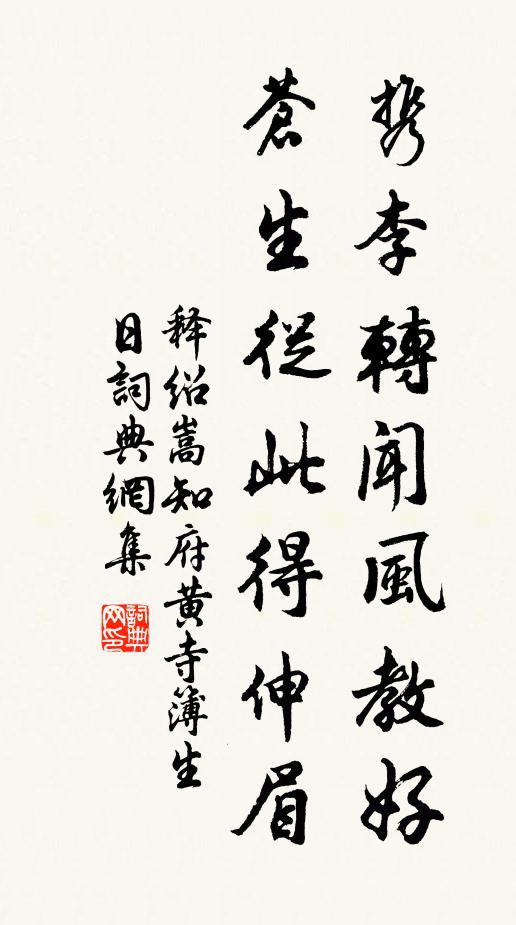 携李轉聞風教好
蒼生從此得伸眉
释绍嵩知府黄寺簿生
日詞典網集
詞典
网印